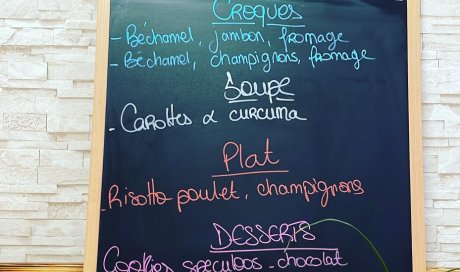 Croques
- Béchamel, jambon, fromage
- Béchamel, champignons, fromage
Soupe
- Carottes & curcuma
Plat
- Risotto poulet, champignons
DESSERTS
Cookies spéculoos - chocolat